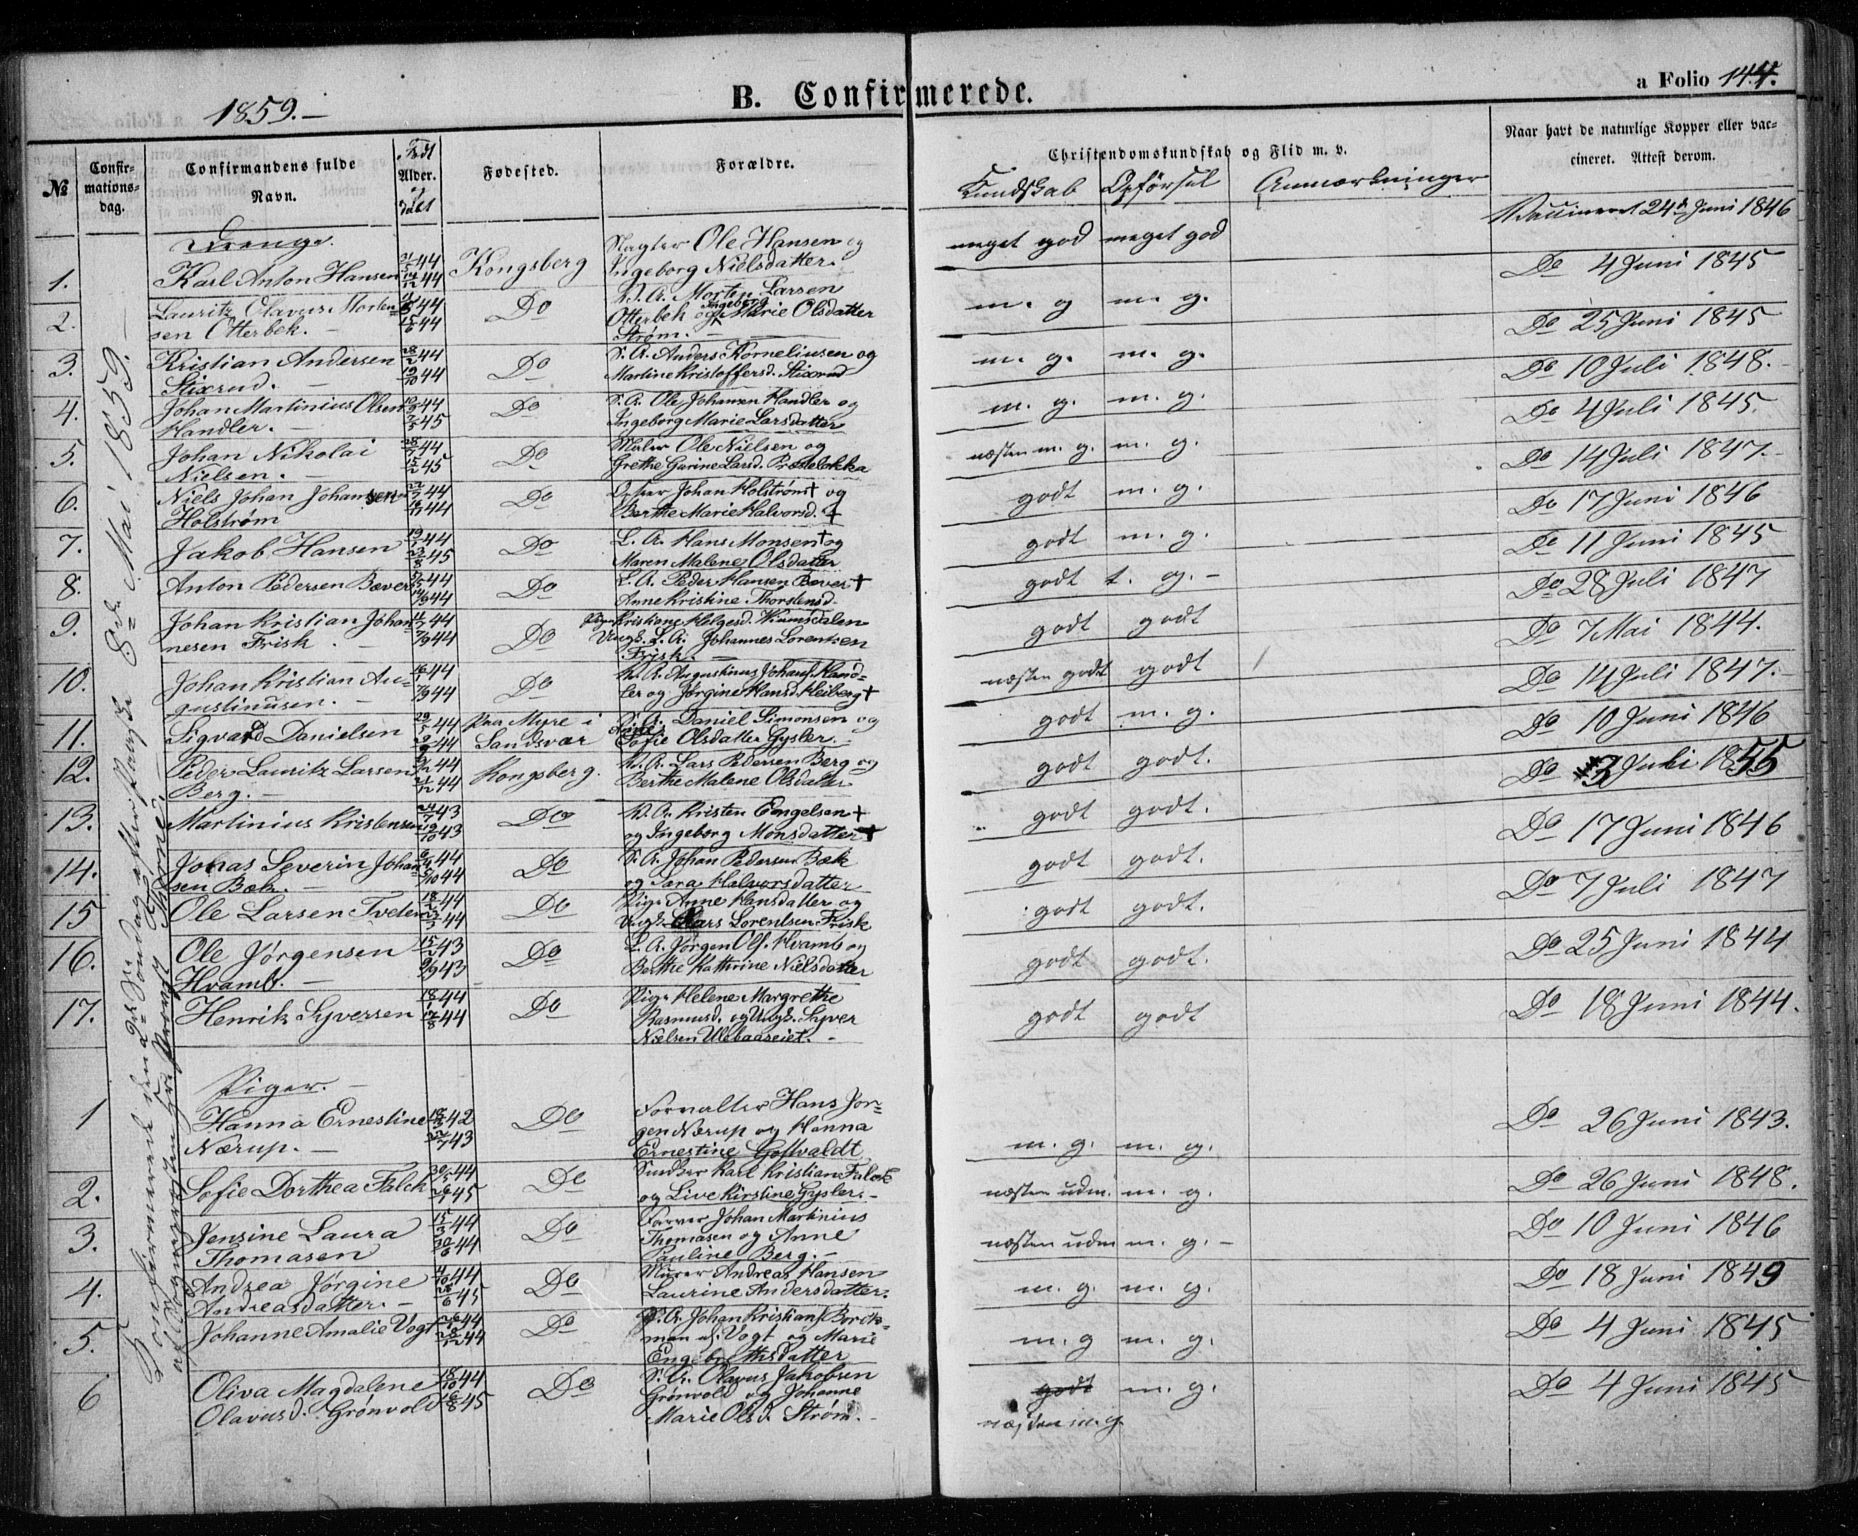 1859.—
B. Confirmerede.
a Folio 144.
№
Confirmations-
dag.
Confirmandens fulde
Navn.
Født
Alder.
Døbt
Fødested.
Forældre.
Christendomskundskab og Flid m. v.
Kundskab Opførsel Anmærkninger
Naar havt de naturlige Kopper eller vac-
cineret. Attest derom.
8de Mai 1859.
Drenge.
1. Karl Anton Hansen 44 44 Kongsberg Slagter Ole Hansen og
Ingeborg Nielsdatter. meget god meget god Vaccineret 24 Juni 1846
2. Lauritz Olavus Morten-
sen Otterbek.— 44 44 Do A. Morten Larsen
Otterbek og Ingeborg Marie Olsdatter
Strøm.— m. g m. g. Do 4 Juni 1845
3. Kristian Andersen
Stixrud.— 44 44 Do S. A. Anders Korneliusen og
Martine Kristoffersd. Stixrud m. g. m. g. Do 25 Juni 1845
4. Johan Martinius Olsen
Handler.— 44 45 Do S. A. Ole Johansen Handler og
Ingeborg Marie Larsdatter m. g. m. g. Do 10 Juli 1848.
5. Johan Nikolai
Nielsen.— 44 45 Do Maler Ole Nielsen og
Grethe Garine Larsd. Præsteløkka næsten m. g. m. g. Do 4 Juli 1845.
6. Niels Johan Johansen
Holstrøm 44 44 Do Johan Holstrøm † og
Berthe Marie Halvorsd. † godt m. g. Do 14 Juli 1847.
7. Jakob Hansen 44 45 Do L. A. Hans Monsen † og
Maren Malene Olsdatter godt m. g. Do 17 Juni 1846
8. Anton Pedersen Bæver 44 44 Do L. A. Peder Hansen Bæver †
Anne Kristine Thorstensd. godt t. g.— Do 11 Juni 1845
9. Johan Kristian Johan-
nesen Frisk.— 44 44 Do Pige Kristiane Helgesd.
Ungk. L. A. Johannes Lorentsen
Frisk.— godt godt Do 28 Juli 1847
10. Johan Kristian Au-
gustinusen.— 44 44 Do A. Augustinus Johans. Hand-
ler og Jørgine Hansd. Heiberg † næsten godt godt Do 7 Mai 1844.
11. Sigvard Danielsen 44 44 Myre i
Sandsvær S. A. Daniel Simonsen og
Sofie Olsdatter Gysler.— godt m. g. Do 14 Juli 1847.
12. Peder Lauritz Larsen
Berg.— 44 44 Kongsberg. A. Lars Pedersen Berg og
Berthe Malene Olsdatter godt godt. Do 10 Juni 1846
13. Martinius Kristensen 43 43 Do A. Kristen Engelsen †
og Ingeborg Monsdatter † godt godt. Do 3 Juli 1855
14. Jonas Severin Johan-
sen Bæk.— 44 44 Do S. A. Johan Pedersen Bæk
og Sara Halvorsdatter godt godt. Do 17 Juni 1846
15 Ole Larsen Tveten 44 44 Do Pige Anne Hansdatter og
Ungk. Lars Lorentsen Frisk godt godt. Do 7 Juli 1847
16. Ole Jørgensen
Hvamb.— 43 43 Do L. A. Jørgen Ols. Hvamb og
Berthe Kathrine Nielsdatter godt godt. Do 25 Juni 1844
17. Henrik Syversen 44 44 Do Pige Helene Margrethe
Rasmusd. og Ungk. Syver
Nielsen Ulebaaseiet.— godt godt Do 18 Juni 1844.
Piger.—
1 Hanna Ernestine
Nærup.— 42 43 Do Forvalter Hans Jør-
gen Nærup og Hanna
Ernestine Gottvaldt m. g. m. g. Do 26 Juni 1843.
2. Sofie Dorthea Falck 44 45 Do Karl Kristian Falck
og Live Kirstine Gysler.— næsten udm. m. g. Do 26 Juni 1848.
3. Jensine Laura
Thomasen 44 44 Do Farver Johan Martinius
Thomasen og Anne
Pauline Berg.— næsten udm m. g.— Do 10 Juni 1846
4. Andrea Jørgine
Andreasdatter.— 44 45 Do Murer Andreas Hansen
Laurine Andersdatter. m. g. m. g. Do 18 Juni 1849
5. Johanne Amalie Vogt 44 44 Do A. Johan Kristian
Vogt og Marie
Engebrethsdatter m. g m. g. Do 4 Juni 1845
6 Oliva Magdalene
Olavusd. Grønvold 44 45 Do S. A. Olavus Jakobsen
Grønvold og Johanne
Marie Olsd. Strøm.— godt m. g. Do 4 Juni 1845
næsten m. g